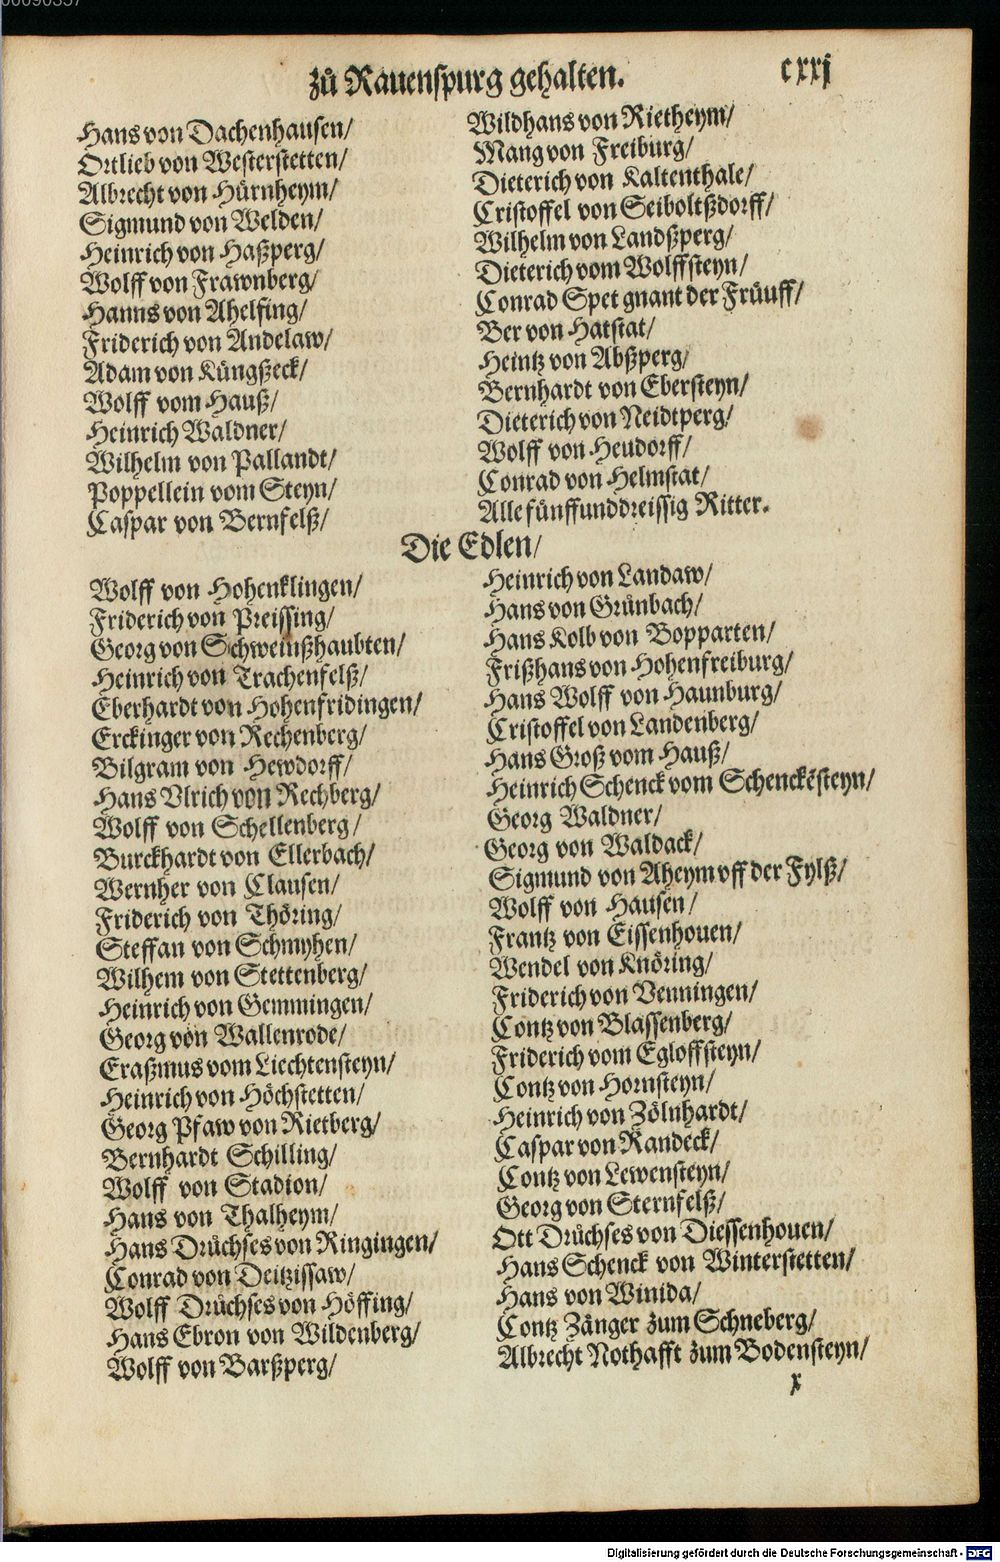 00090357
zů Rauenspurg gehalten.
cxxj
Hans von Dachenhausen/
Ortlieb von Westerstetten/
Albrecht von Hürnheym/
Sigmund von Welden/
Heinrich von Haßperg/
Wolff von Frawnberg/
Hanns von Ahelfing/
Friderich von Andelaw/
Adam von Küngßeck/
Wolff vom Hauß/
Heinrich Waldner/
Wilhelm von Pallandt/
Poppellein vom Steyn/
Caspar von Bernfelß/
Wildhans von Rietheym/
Mang von Freiburg/
Dieterich von Kaltenthale/
Cristoffel von Seiboltßdorff/
Wilhelm von Landßperg/
Dieterich vom Wolffsteyn/
Conrad Spet gnant der Früuff/
Ber von Hatstat/
Heintz von Abßperg/
Bernhardt von Ebersteyn/
Dieterich von Neidtperg/
Wolff von Heudorff/
Conrad von Helmstat/
Alle fünffunddreissig Ritter.
Die Edlen/
Wolff von Hohenklingen/
Friderich von Preissing/
Georg von Schweinßhaubten/
Heinrich von Trachenfelß/
Eberhardt von Hohenfridingen/
Erckinger von Rechenberg/
Bilgram von Hewdorff/
Hans Vlrich von Rechberg/
Wolff von Schellenberg/
Burckhardt von Ellerbach/
Wernher von Clausen/
Friderich von Thöring/
Steffan von Schmyhen/
Wilhem von Stettenberg/
Heinrich von Gemmingen/
Georg von Wallenrode/
Eraßmus vom Liechtensteyn/
Heinrich von Höchstetten/
Georg Pfaw von Rietberg/
Bernhardt Schilling/
Wolff von Stadion/
Hans von Thalheym/
Hans Drůchses von Ringingen/
Conrad von Deitzissaw/
Wolff Drůchses von Höffing/
Hans Ebron von Wildenberg/
Wolff von Barßperg/
Heinrich von Landaw/
Hans von Grünbach/
Hans Kolb von Bopparten/
Frißhans von Hohenfreiburg/
Hans Wolff von Haunburg/
Cristoffel von Landenberg/
Hans Groß vom Hauß/
Heinrich Schenck vom Schenckēsteyn/
Georg Waldner/
Georg von Waldack/
Sigmund von Aheym vff der Fylß/
Wolff von Hausen/
Frantz von Eissenhouen/
Wendel von Knöring/
Friderich von Venningen/
Contz von Blassenberg/
Friderich vom Egloffsteyn/
Contz von Hornsteyn/
Heinrich von Zölnhardt/
Caspar von Randeck/
Contz von Lewensteyn/
Georg von Sternfelß/
Ott Drůchses von Diessenhouen/
Hans Schenck von Winterstetten/
Hans von Winida/
Contz Zänger zum Schneberg/
Albrecht Nothafft zum Bodensteyn/
x
Digitalisierung gefördert durch die Deutsche Forschungsgemeinschaft - DFG